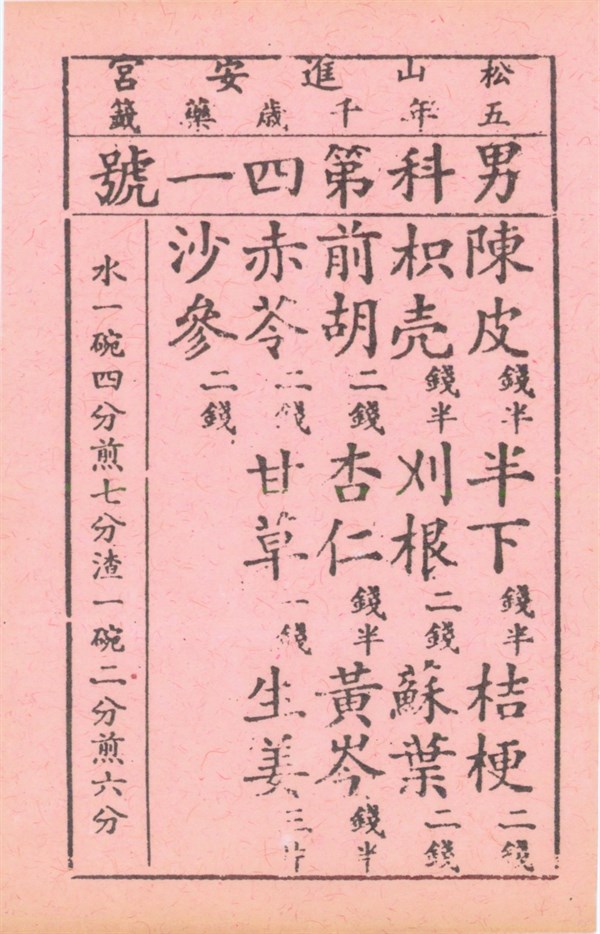 松山進安宮
五年千歲藥籤
男科第四一號
陳皮錢半半下錢半桔梗二錢
枳壳錢半刈根二錢蘇葉二錢
前胡二錢杏仁錢半黃岑錢半
赤苓二錢甘草一錢生姜三片
沙參二錢
水一碗四分煎七分渣一碗二分煎六分